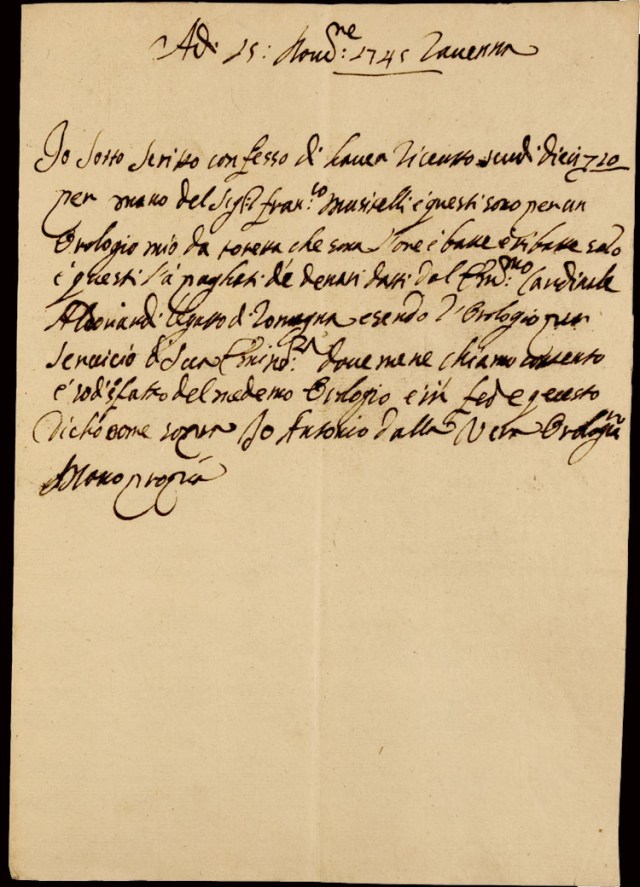 Adi 15: Novb:re 1745 Ravenna
Io sotto scritto confesso di haver ricevuto scudi dieci 7 10
per mano del Sig:r Fran:co Musitelli e questi sono per un
Orologio mio da toretta che sona l'ore e batte e ribatte
e questi l'à paghati de denari dati dal Em:mo Cardinale
Aldovrandi legatto di Romagna esendo l'Orologio per
servicio di Sua Emin:za dove me ne chiamo contento
e sodisfatto del medemo Orologio e in fede questo
dicho come sopra Io Antonio dalla Vera
Mano propria